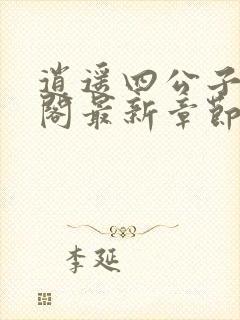 逍遥四公子
阁最新章节
李延